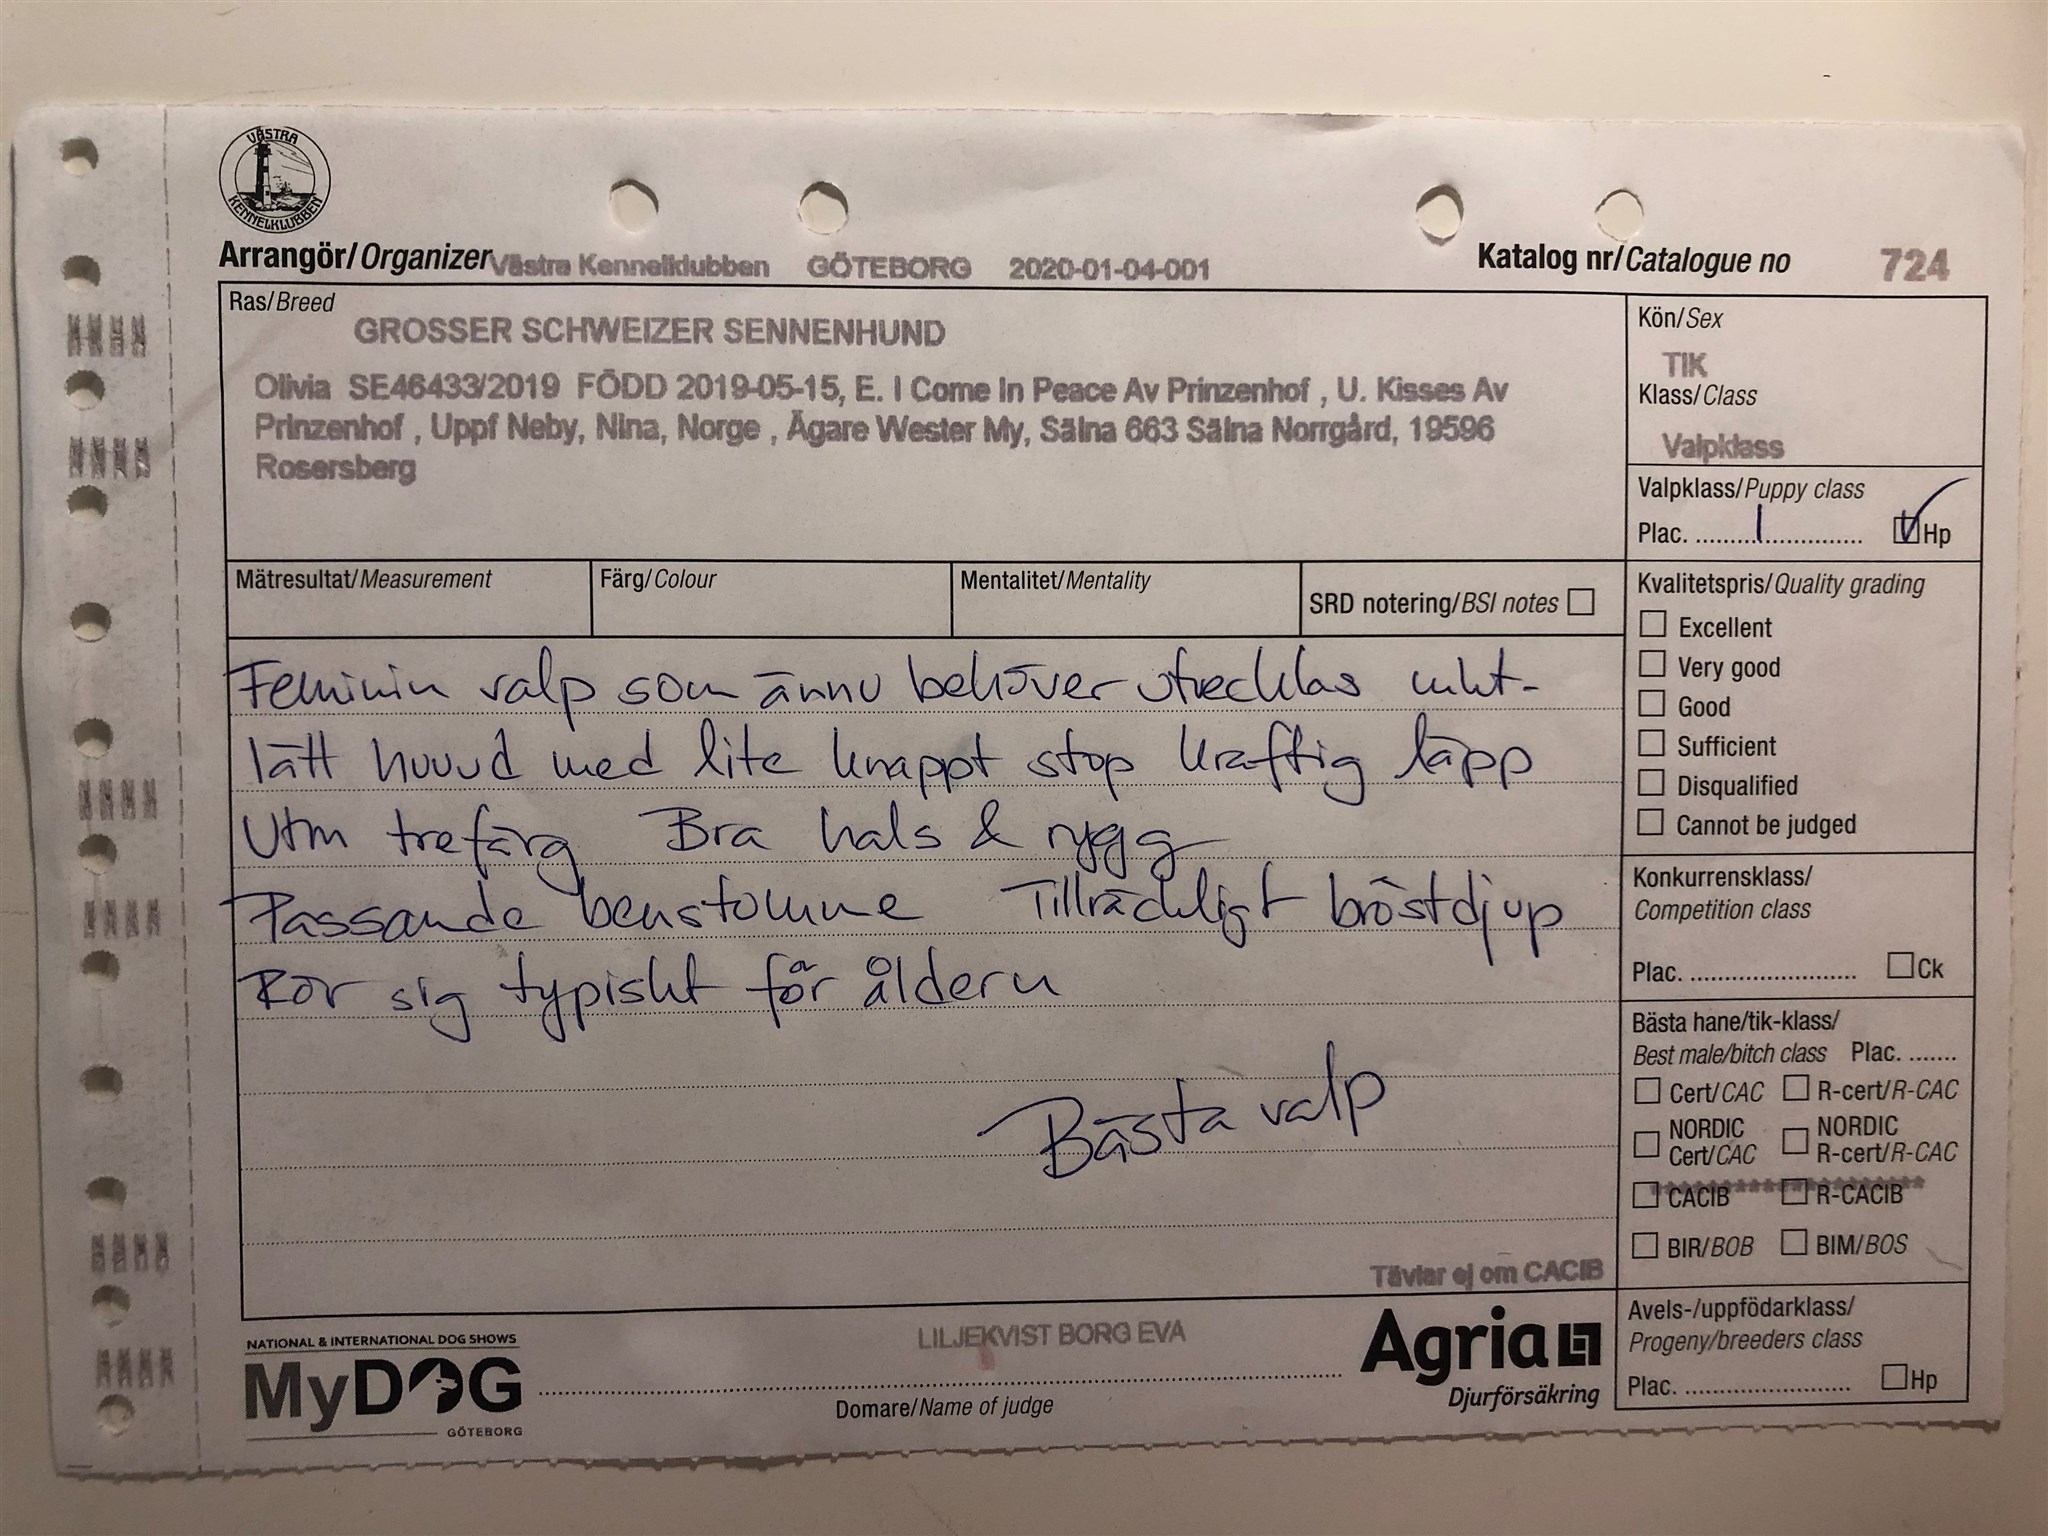 VÄSTRA
KENNELKLUBBEN
Arrangör/Organizer Västra Kennelklubben GÖTEBORG 2020-01-04-001
Katalog nr/Catalogue no 724
Ras/Breed
GROSSER SCHWEIZER SENNENHUND
Olivia SE46433/2019 FÖDD 2019-05-15, E. I Come In Peace Av Prinzenhof , U. Kisses Av
Prinzenhof , Uppf Neby, Nina, Norge , Ägare Wester My, Sälna 663 Sälna Norrgård, 19596
Rosersberg
Kön/Sex
TIK
Klass/Class
Valpklass
Valpklass/Puppy class
Plac. 1 Hp
Mätresultat/Measurement
Färg/Colour
Mentalitet/Mentality
SRD notering/BSI notes
Feminin valp som ännu behöver utvecklas
lätt huvud med lite knappt stop kraftig läpp
Utm trefärg Bra hals & rygg
Passande benstomme Tillräckligt bröstdjup
Rör sig typiskt för åldern
Bästa valp
Tävlar ej om CACIB
Kvalitetspris/Quality grading
Excellent
Very good
Good
Sufficient
Disqualified
Cannot be judged
Konkurrensklass/
Competition class
Plac. Ck
Bästa hane/tik-klass/
Best male/bitch class Plac.
Cert/CAC R-cert/R-CAC
NORDIC Cert/CAC NORDIC R-cert/R-CAC
CACIB R-CACIB
BIR/BOB BIM/BOS
Avels-/uppfödarklass/
Progeny/breeders class
Plac. Hp
NATIONAL & INTERNATIONAL DOG SHOWS
MyDOG
GÖTEBORG
LILJEKVIST BORG EVA
Domare/Name of judge
Agria
Djurförsäkring